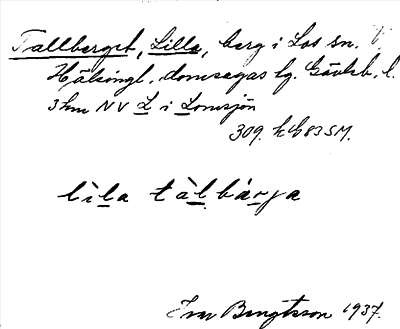 Tallberget, Lilla, berg i Los sn.
Hälsingl. domsagas lg. Gävleb. l.
3 km NV L i Lomsjön
309. h. Eb 83 SM.
lìla tàlbárja
Ivar Bengtsson 1937.